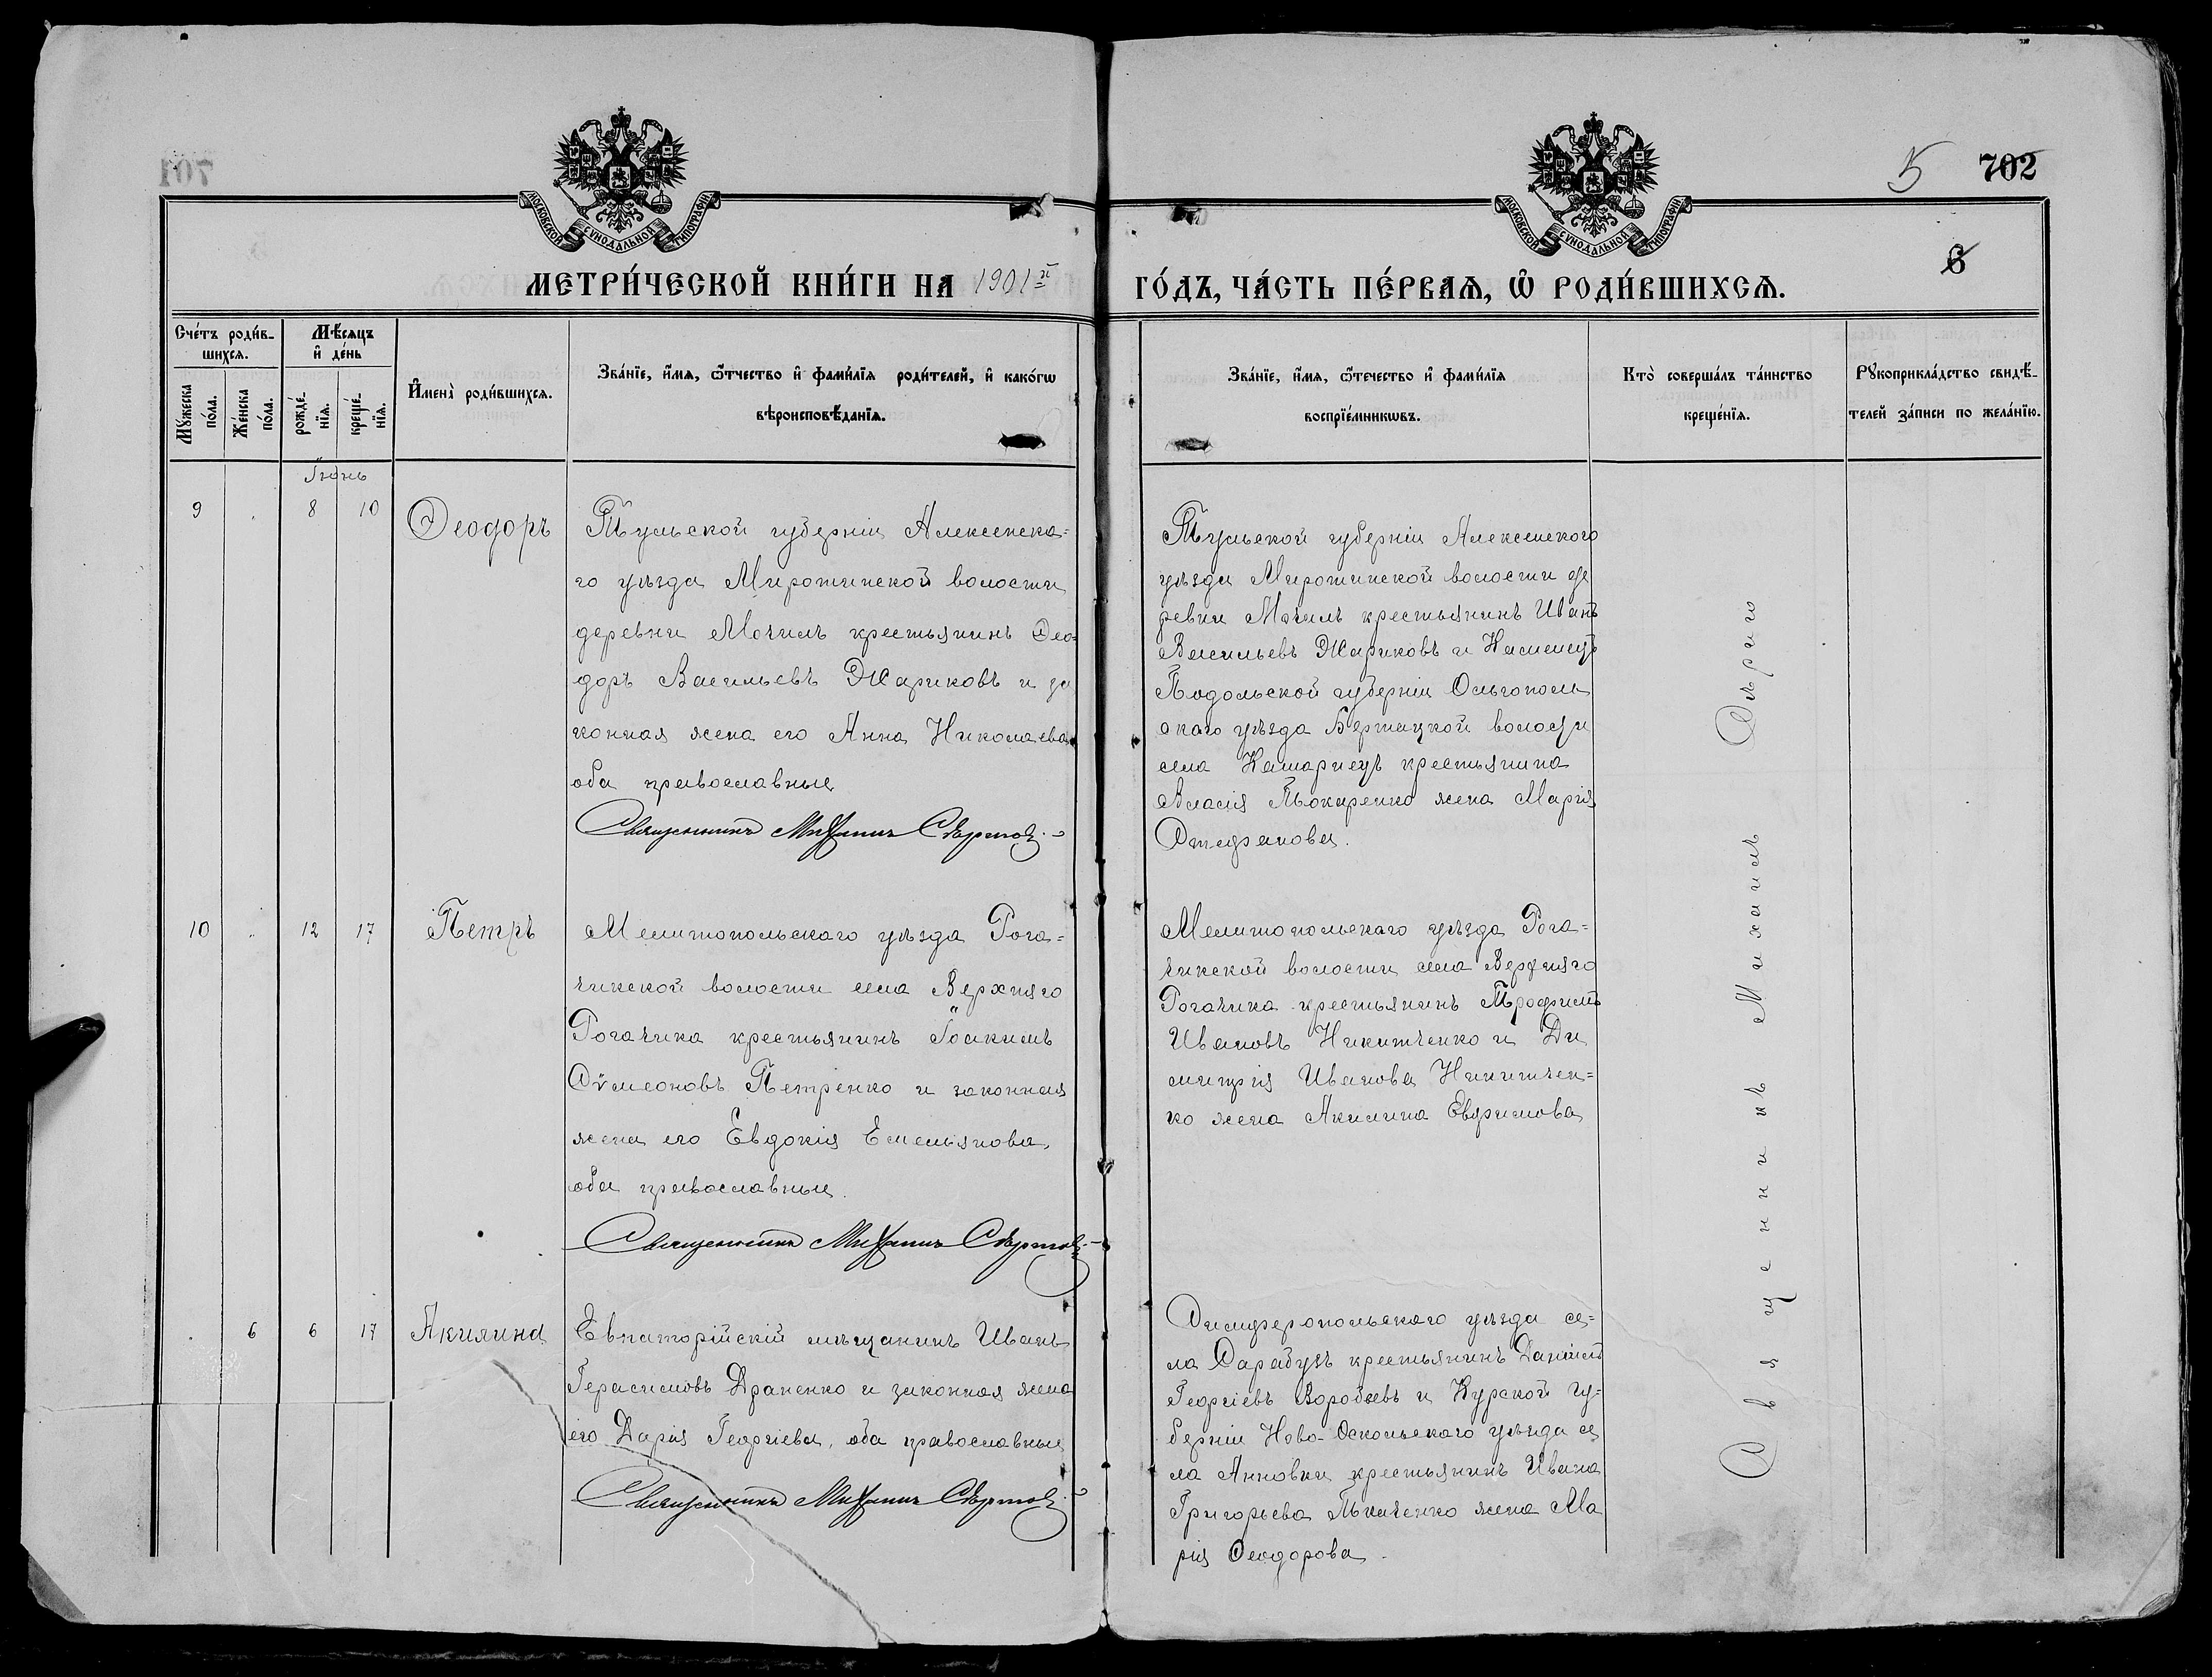 701
5 702
6
МОСКОВСКОЙ СѴНОДАЛЬНОЙ ТИПОГРАФІИ
МОСКОВСКОЙ СѴНОДАЛЬНОЙ ТИПОГРАФІИ
МЕТРИ́ЧЕСКОЙ КНИ́ГИ НА 1901й ГО́ДЪ, ЧА́СТЬ ПЕ́РВАѦ, Ѽ РОДИ́ВШИХСѦ.
Сче́тъ роди́в-
шихсѧ.
Мꙋжеска
по́ла.
Же́нска
по́ла.
Мѣ́сѧцъ
и҆ де́нь
рожде́-
нїѧ.
креще́-
нїѧ.
И҆мена̀ роди́вшихсѧ.
Зва́нїе, и҆́мѧ, ѻ҆́тчество и҆ фами́лїѧ роди́телей, и҆ како́гѡ
вѣроисповѣ́данїѧ.
Зва́нїе, и҆́мѧ, ѻ҆те́чество и҆ фами́лїѧ
воспрїе́мникѡвъ.
Кто̀ соверша́лъ та́инство
креще́нїѧ.
Рꙋкоприкла́дство свидѣ́-
телей за́писи по жела́нїю.
Іюнь
9 8 10
Ѳеодоръ
Тульской губерніи Алексинска=
го уѣзда Миротинской волости
деревни Мочилъ крестьянинъ Ѳео=
доръ Васильевъ Жариковъ и за
конная жена его Анна Николаева
оба православные
Священникъ Михаилъ
Тульской губерніи Алексинского
уѣзда Миротинской волости де
ревни Мочилъ крестьянинъ Иванъ
Васильевъ Жариковъ и
Подольской губерніи Ольгополь
скаго уѣзда волости
села крестьянина
Власія жена Марія
Стефанова.
10 12 17
Петръ
Мелитопольскаго уѣзда Рога=
чикской волости села Верхняго
Рогачика крестьянинъ Іоакимъ
Сѵмеоновъ Петренко и законная
жена его Евдокія Емельянова,
оба православные.
Священникъ Михаилъ
Мелитопольскаго уѣзда Рога=
чикской волости села Верхняго
Рогачика крестьянинъ Трофимъ
Ивановъ Никитченко и Ди
митрія Иванова Никитчен=
ко жена Акилина Евфимова
6 6 17
Акилина
Евпаторійскій мѣщанинъ Иванъ
Герасимовъ Драненко и законная жена
его Дарія Георгіева, оба православные
Священникъ Михаилъ
Симферопольскаго уѣзда се=
ла Сарабузъ крестьянинъ Даніилъ
Георгіевъ Воробьевъ и Курской гу=
берніи Ново-Оскольскаго уѣзда се
ла Анновки крестьянинъ Ивана
Григорьева Ткаченко жена Ма
рія Ѳеодорова.
Священникъ Михаилъ